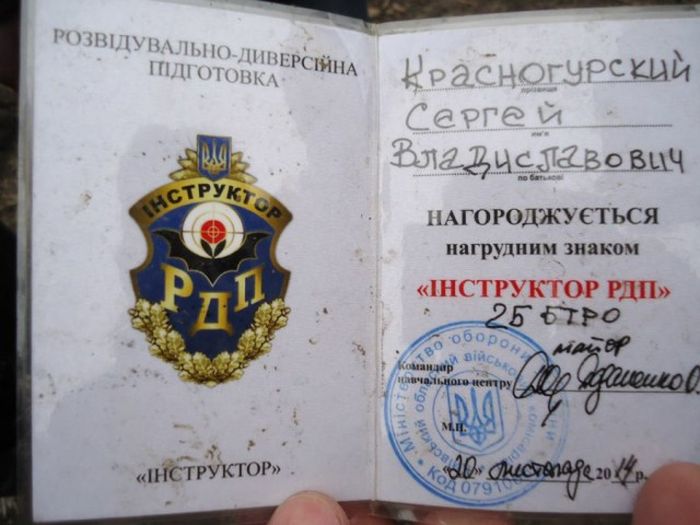 РОЗВІДУВАЛЬНО-ДИВЕРСІЙНА
ПІДГОТОВКА
ІНСТРУКТОР
РДП
«ІНСТРУКТОР»
Красногурский
прізвище
Сергей
ім'я
Владиславович
по батькові
НАГОРОДЖУЄТЬСЯ
нагрудним знаком
«ІНСТРУКТОР РДП»
25 БТРО
майор
Командир
навчального центру
М.П.
Міністерство оборони
Код 0791
«20» листопада 2014 р.